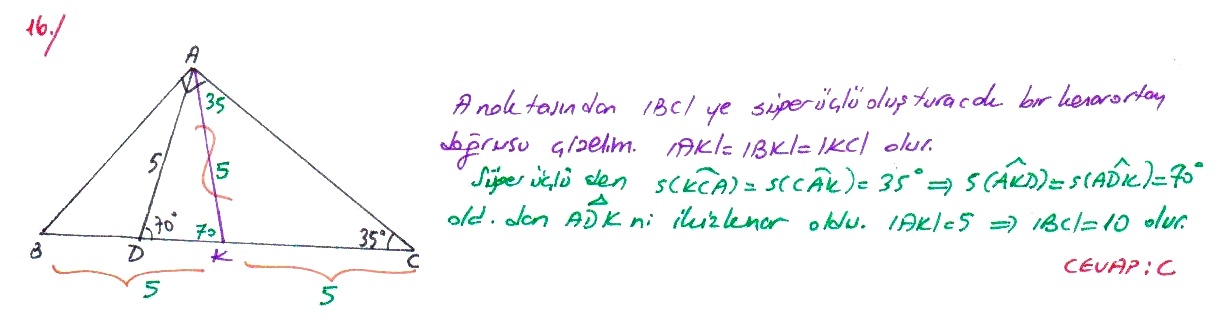 16./
A
35
5
5
70°
70
35°
B
D
K
C
5
5
A noktasından |BC| ye süper üçlü oluşturacak bir kenarortay
doğrusu çizelim. |AK|=|BK|=|KC| olur.
Süper üçlü den s(KCA) = s(CAK) = 35° ⇒ s(AKD)=s(ADK)=70°
old. dan ADK ni ikizkenar oldu. |AK|=5 ⇒ |BC|=10 olur.
CEVAP: C